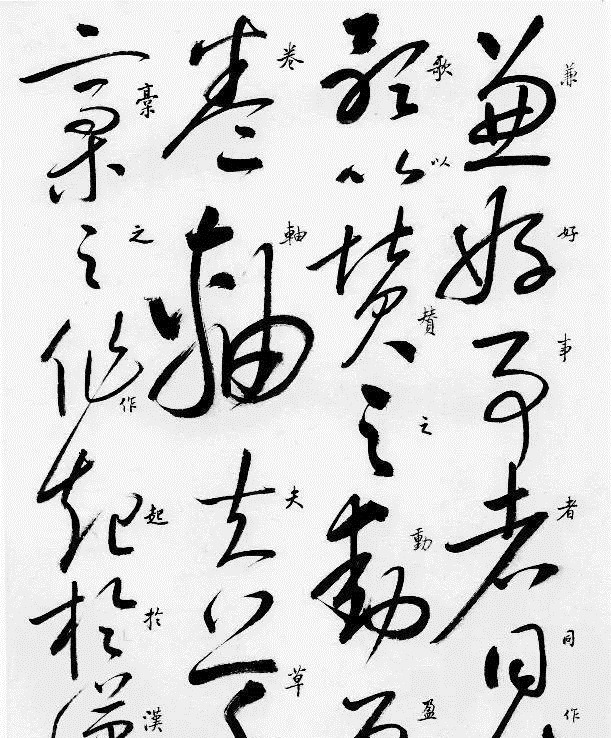 兼好事者同作
歌以賛之動盈
卷軸夫草
稾之作起於漢